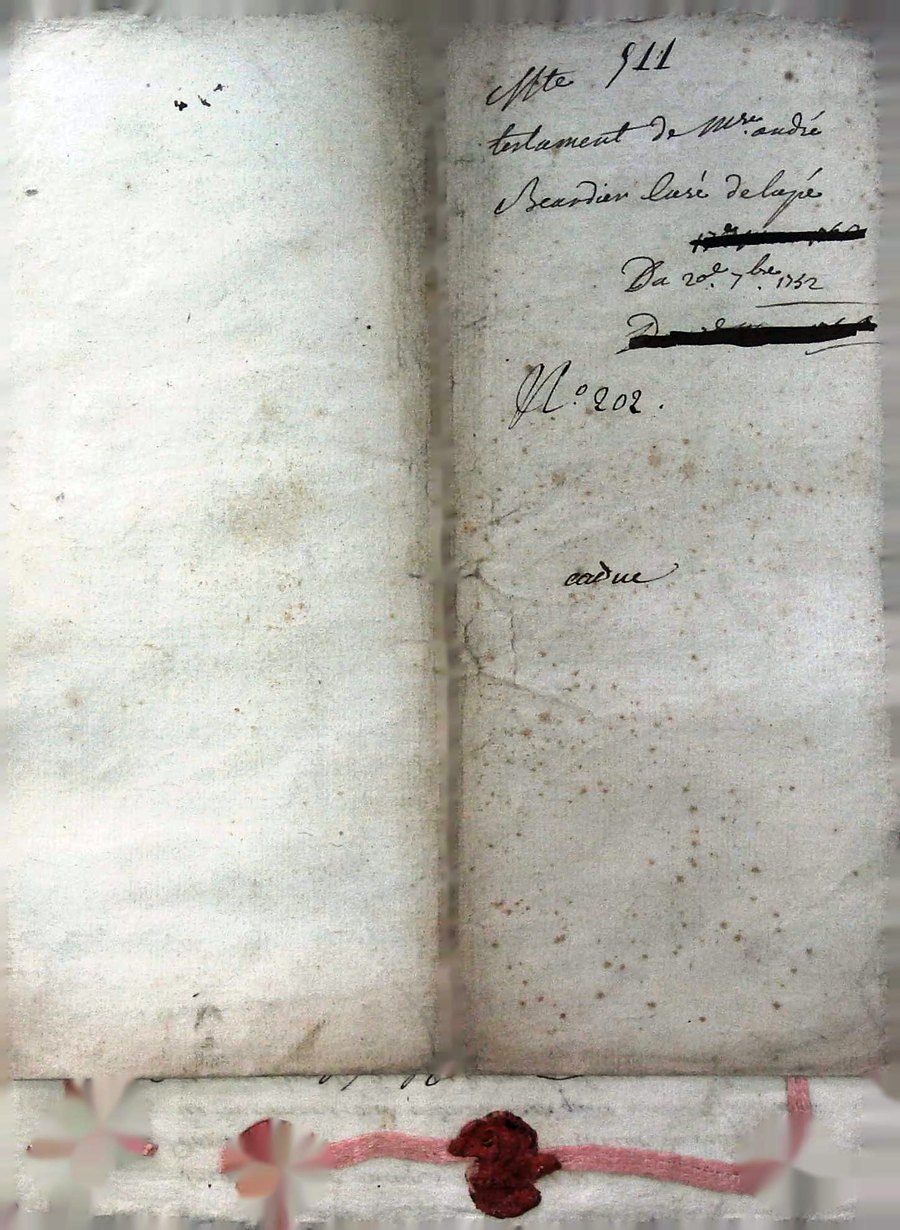 Mte 511
testament de Mre. andré
Beardier Curé delapé
Du 20e. 7bre. 1752
No. 202.
caduc